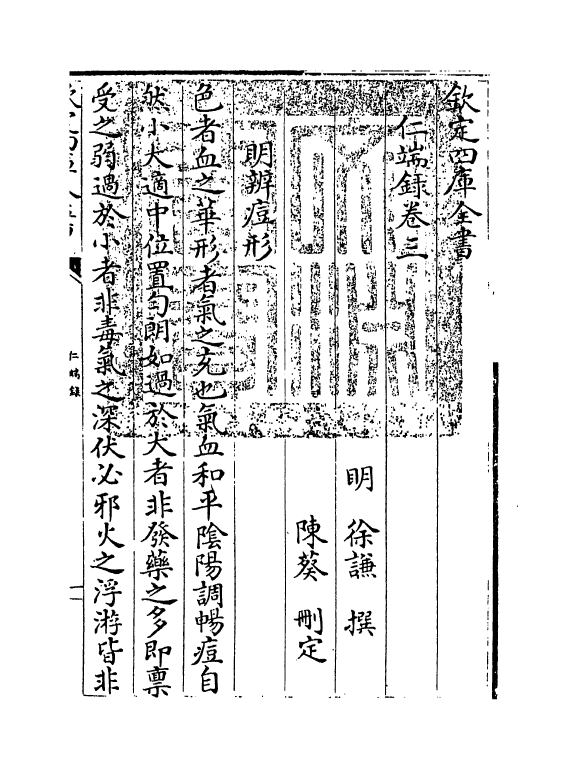 欽定四庫全書
仁端錄卷三
明 徐謙 撰
陳葵 刪定
明辨痘形
色者血之華形者氣之充也氣血和平陰陽調暢痘自
然小大適中位置勻朗如過於大者非發藥之多即禀
受之弱過於小者非毒氣之深伏必邪火之浮游皆非
仁端錄
一